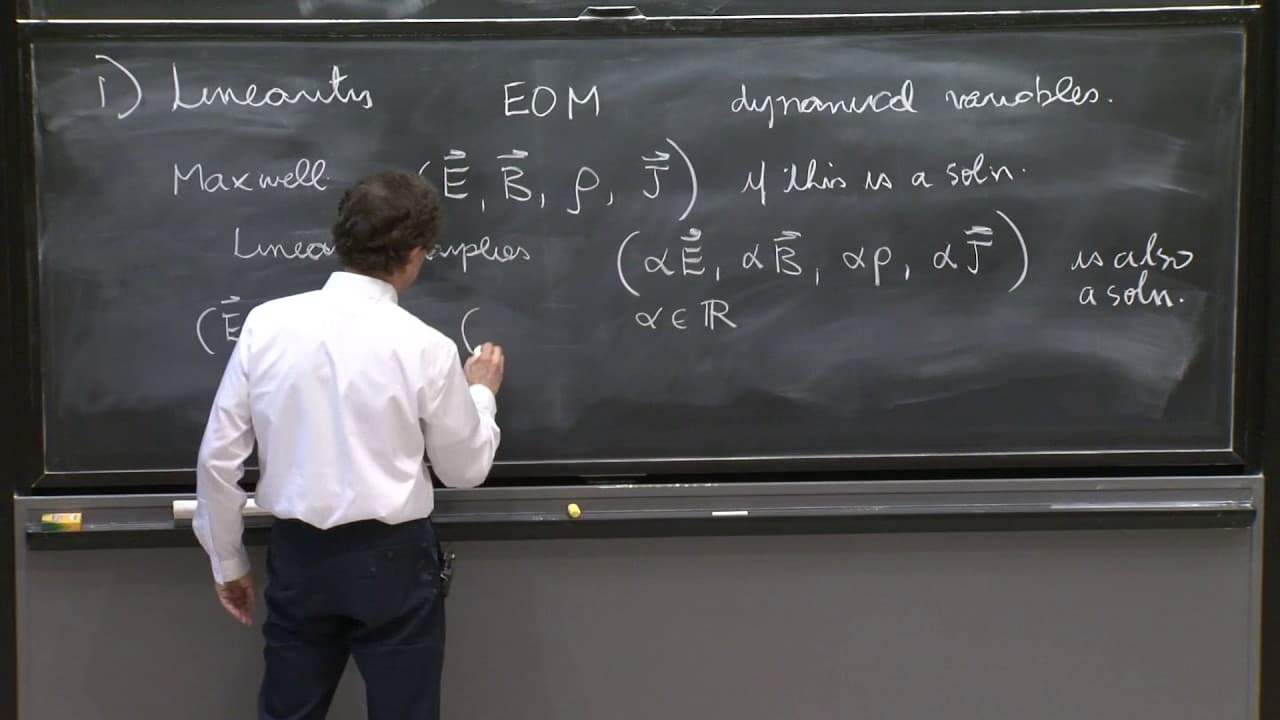 i) Linearity EOM dynamical variables.
Maxwell (E⃗, B⃗, ρ, J⃗) if this is a soln.
implies (αE⃗, αB⃗, αρ, αJ⃗) is also
a soln.
(E⃗ ( α ∈ ℝ